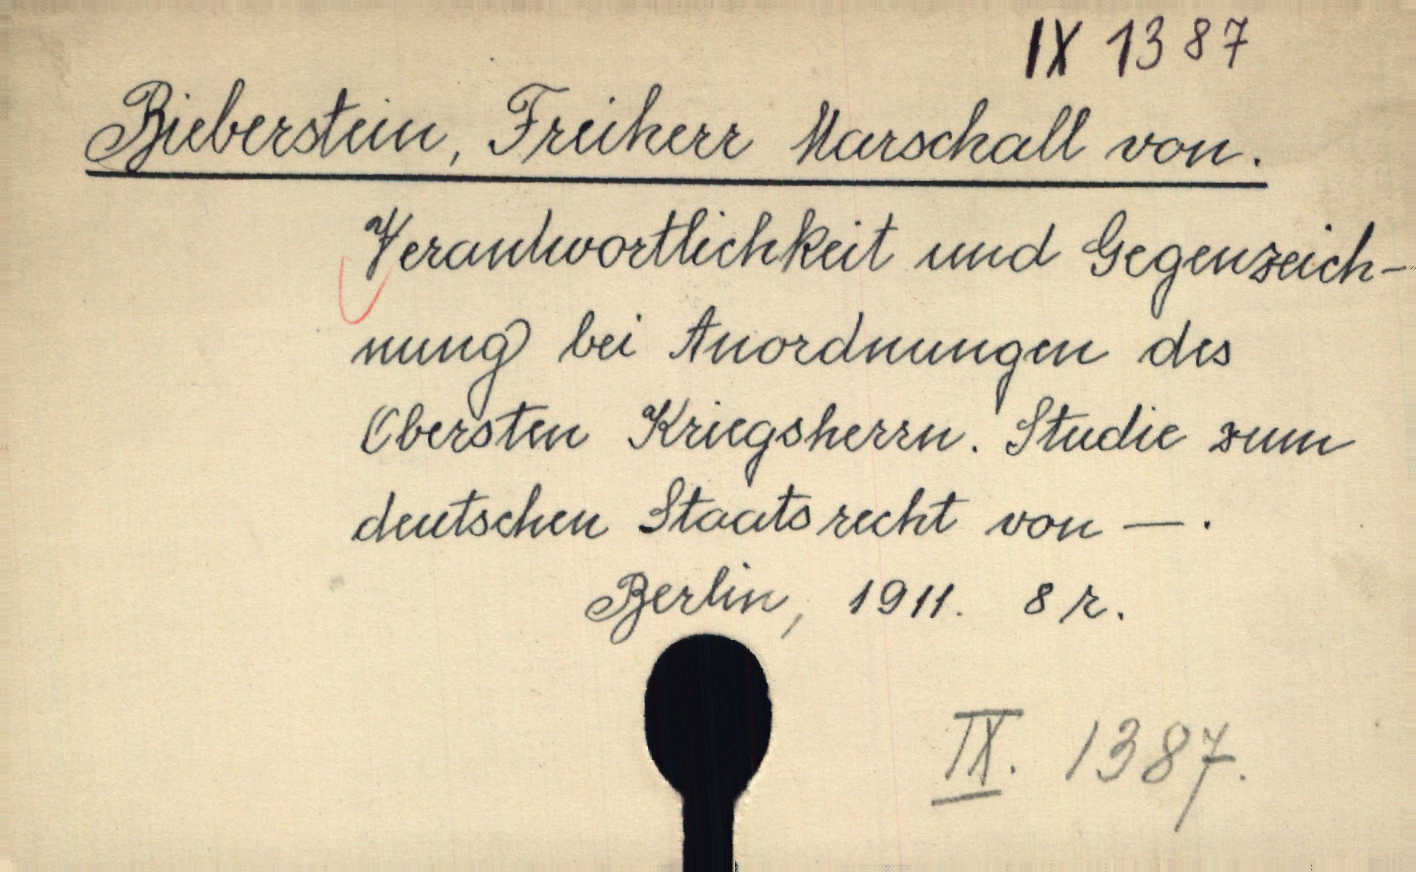 IX 1387
Bieberstein, Freiherr Marschall von.
Verantwortlichkeit und Gegenzeich-
nung bei Anordnungen des
Obersten Kriegsherrn. Studie zum
deutschen Staatsrecht von —.
Berlin, 1911. 8 r.
IX. 1387.